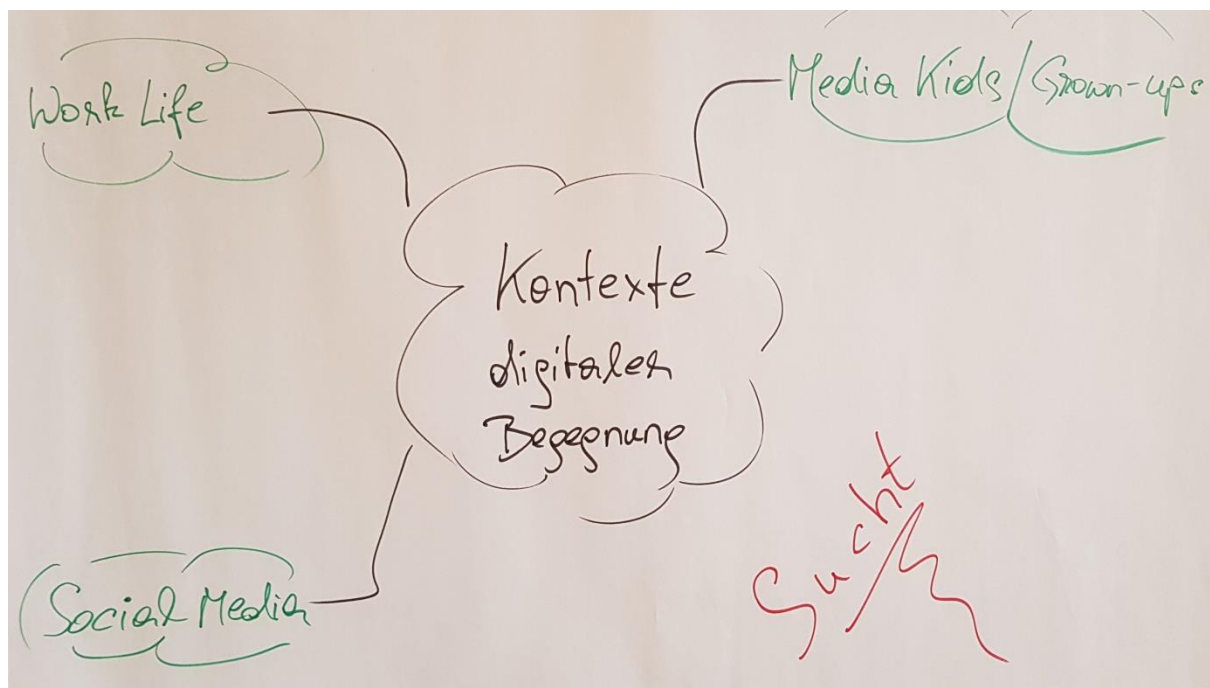 Work Life
Media Kids / Grown-ups
Kontexte
digitaler
Begegnung
Social Media
Sucht